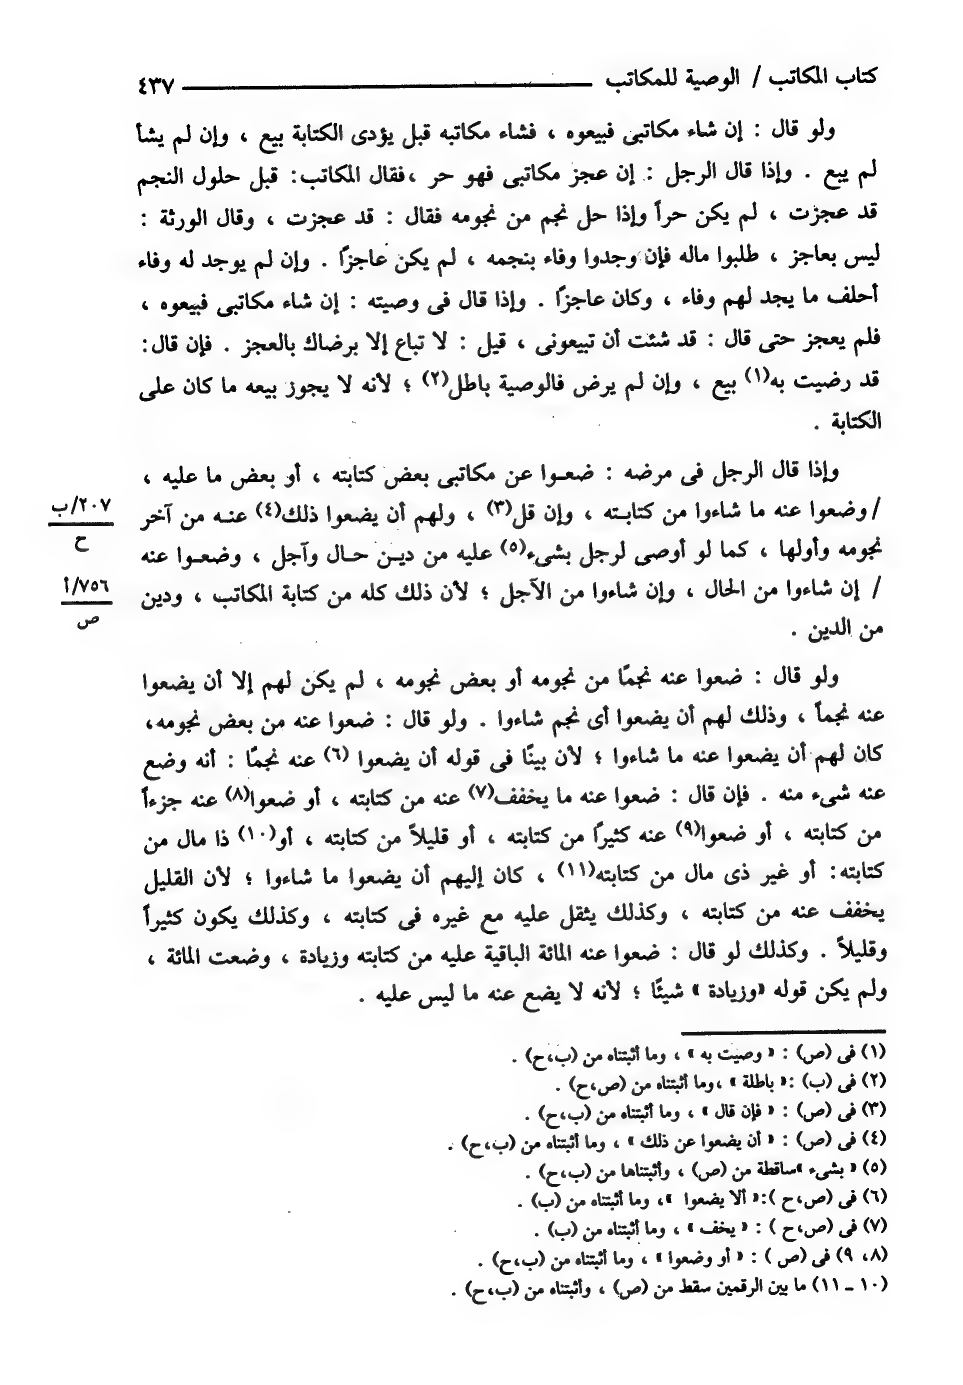 كتاب المكاتب / الوصية للمكاتب ــــــ ٤٣٧
ولو قال : إن شاء مكاتبى فبيعوه ، فشاء مكاتبه قبل يؤدى الكتابة بيع ، وإن لم يشأ
لم يبع . وإذا قال الرجل : إن عجز مكاتبى فهو حر ،فقال المكاتب: قبل حلول النجم
قد عجزت ، لم يكن حراً وإذا حل نجم من نجومه فقال : قد عجزت ، وقال الورثة :
ليس بعاجز ، طلبوا ماله فإن وجدوا وفاء بنجمه ، لم يكن عاجزًا . وإن لم يوجد له وفاء
أحلف ما يجد لهم وفاء ، وكان عاجزًا . وإذا قال فى وصيته : إن شاء مكاتبى فبيعوه ،
فلم يعجز حتى قال : قد شئت أن تبيعونى ، قيل : لا تباع إلا برضاك بالعجز . فإن قال:
قد رضيت به(١) بيع ، وإن لم يرض فالوصية باطل(٢) ؛ لأنه لا يجوز بيعه ما كان على
الكتابة .
وإذا قال الرجل فى مرضه : ضعـوا عن مكاتبى بعض كتابته ، أو بعض ما عليه ،
/ وضعوا عنه ما شاءوا من كتابـته ، وإن قل(٣) ، ولهم أن يضعوا ذلك(٤) عنـه من آخر
٢٠٧/ب
ح
نجومه وأولها ، كما لو أوصى لرجل بشىء(٥) عليه من ديـن حـال وآجل ، وضعـوا عنه
/ إن شاءوا من الحال ، وإن شاءوا من الآجل ؛ لأن ذلك كله من كتابة المكاتب ، ودين
٧٥٦/أ
ص
من الدين .
ولو قال : ضعوا عنه نجمًا من نجومه أو بعض نجومه ، لم يكن لهم إلا أن يضعوا
عنه نجماً ، وذلك لهم أن يضعوا أى نجم شاءوا . ولو قال : ضعوا عنه من بعض نجومه،
كان لهم أن يضعوا عنه ما شاءوا ؛ لأن بينًا فى قوله أن يضعوا (٦) عنه نجمًا : أنه وضع
عنه شىء منه . فإن قال : ضعوا عنه ما يخفف(٧) عنه من كتابته ، أو ضعوا(٨) عنه جزءاً
من كتابته ، أو ضعوا(٩) عنه كثيرًا من كتابته ، أو قليلاً من كتابته ، أو(١٠) ذا مال من
كتابته: أو غير ذى مال من كتابته(١١) ، كان إليهم أن يضعوا ما شاءوا ؛ لأن القليل
يخفف عنه من كتابته ، وكذلك يثقل عليه مع غيره فى كتابته ، وكذلك يكون كثيراً
وقليلاً . وكذلك لو قال : ضعوا عنه المائة الباقية عليه من كتابته وزيادة ، وضعت المائة ،
ولم يكن قوله «وزيادة » شيئًا ؛ لأنه لا يضع عنه ما ليس عليه .
(١) فى (ص) : « وصيت به » ، وما أثبتناه من (ب،ح) .
(٢) فى (ب) :« باطلة » ،وما أثبتناه من (ص،ح) .
(٣) فى (ص) : « فإن قال » ، وما أثبتناه من (ب،ح) .
(٤) فى (ص) : « أن يضعوا عن ذلك » ، وما أثبتناه من (ب،ح) .
(٥) « بشىء »ساقطة من (ص) ، وأثبتناها من (ب،ح) .
(٦) فى (ص،ح ):« ألا يضعوا »، وما أثبتناه من (ب) .
(٧) فى (ص،ح ) : « يخف » ، وما أثبتناه من (ب) .
(٨، ٩) فى (ص ) : « أو وضعوا » ، وما أثبتناه من (ب،ح) .
(١٠ ـ ١١) ما بين الرقمين سقط من (ص) ، وأثبتناه من (ب،ح) .